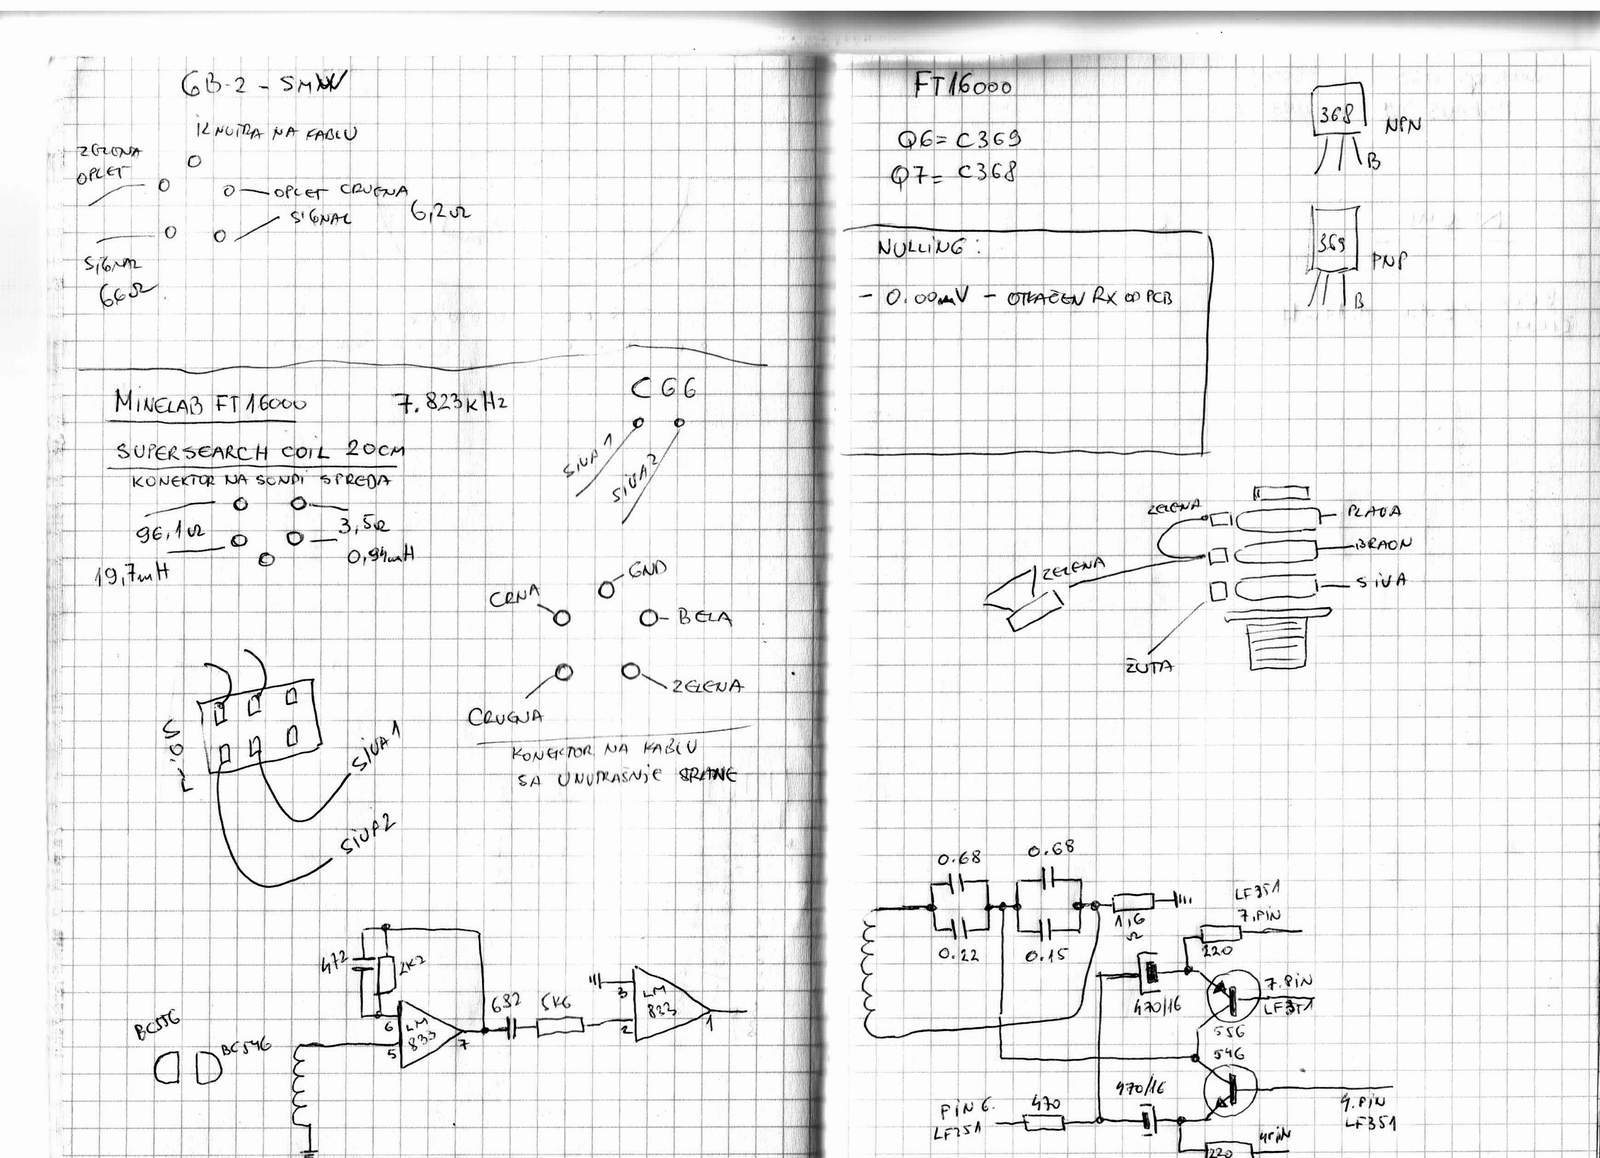 GB-2 - SMW
IZNUTRA NA KABLU
ZELENA
OPLET
OPLET CRVENA
SIGNAL 6,2Ω
SIGNAL
66Ω
MINELAB FT16000 7.823KHz
SUPERSEARCH COIL 20CM
KONEKTOR NA SONDI SPREDA
96,1Ω
3,5Ω
19,7mH
0,94mH
C G G
SIVA 1
SIVA 2
GND
CRNA
BELA
CRVENA
ZELENA
KONEKTOR NA KABLU
SA UNUTRAŠNJE STRANE
SIVA 1
SIVA 2
472
2K2
6
LM
833
5
7
682
5K6
3
LM
833
2
1
BC556
BC546
FT16000
Q6= C369
Q7= C368
368
NPN
B
369
PNP
B
NULLING:
- 0.00mV - OTKAČEN RX OD PCB
ZELENA
PLAVA
BRAON
ZELENA
SIVA
ŽUTA
0.68
0.68
0.22
0.15
1,6
Ω
LF351
7.PIN
220
470/16
7.PIN
LF351
556
546
470/16
PIN 6.
LF351
470
4.PIN
LF351
220
4PIN